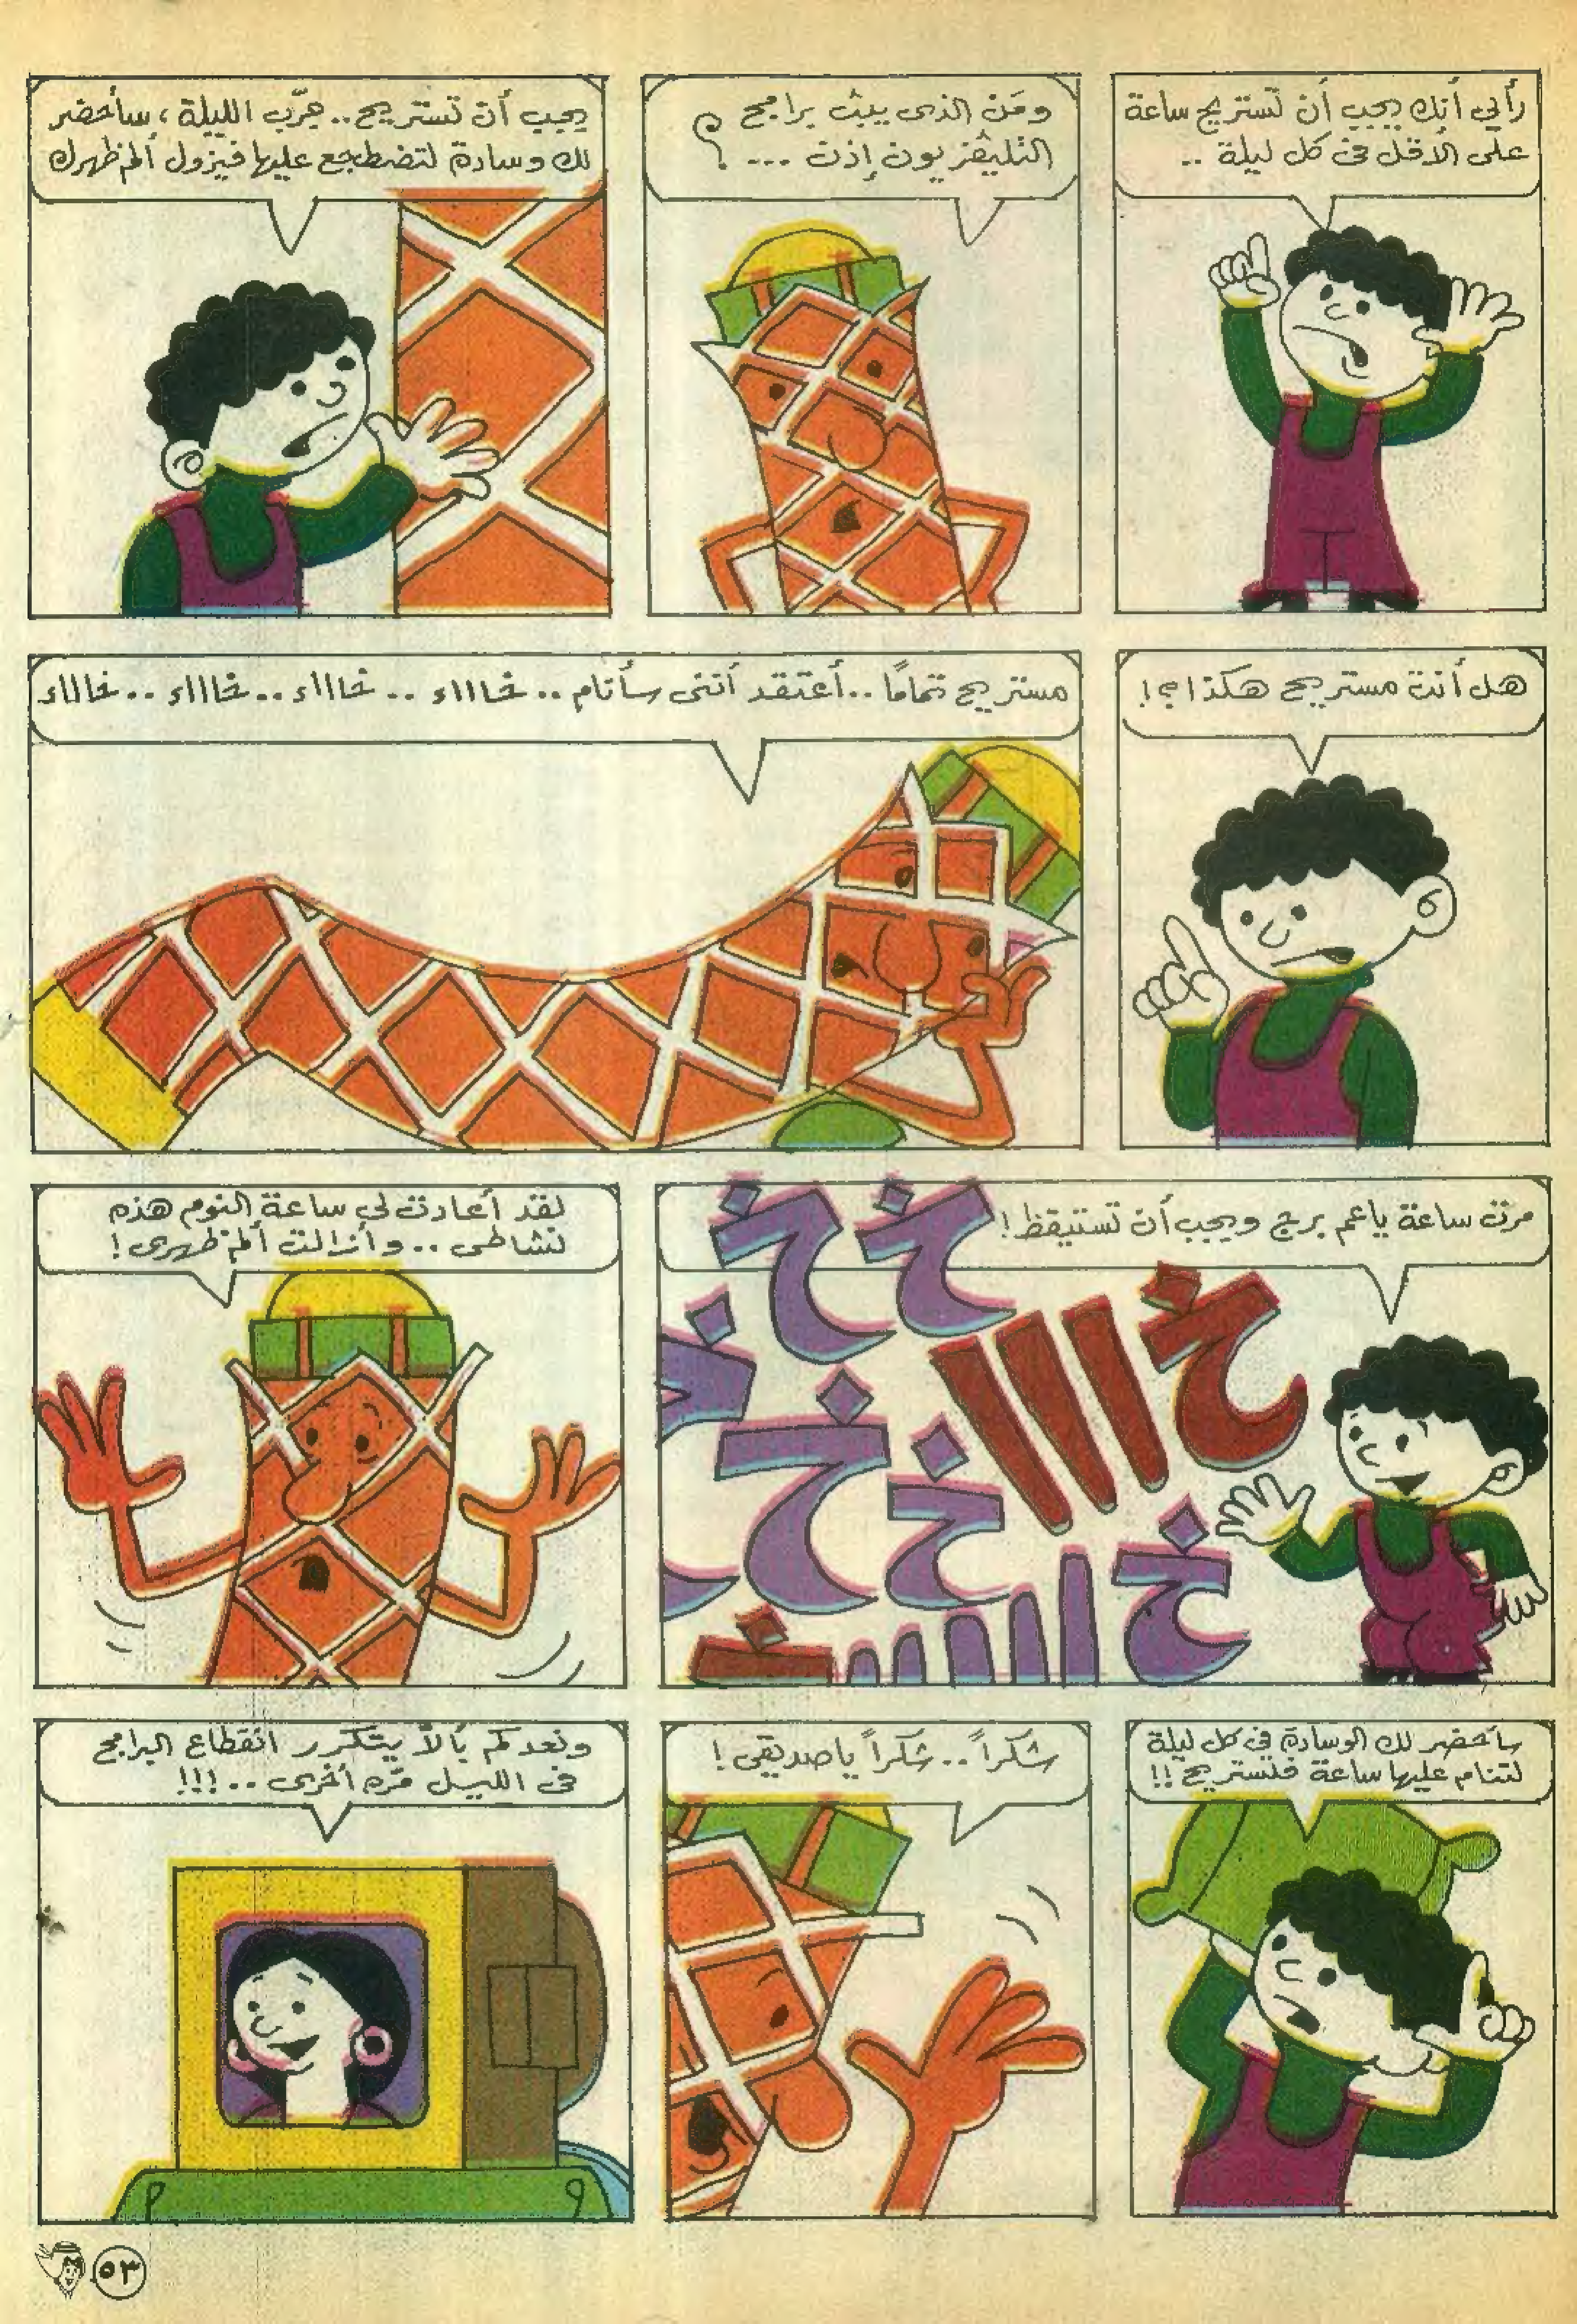 رأيي أنك يجب أن تستريح ساعة
على الأقل فى كل ليلة ..
ومَن الذى يبث برامج
التليفزيون إذن ... ؟
يجب أن تستريح.. جرّب الليلة، سأحضر
لك وسادة لتضطجع عليها فيزول ألم ظهرك
هل أنت مستريح هكذا؟!
مستريح تمامًا ..أعتقد أننى سأنام .. خااااء .. خااااء .. خااااء .. خااااء
مرت ساعة ياعم برج ويجب أن تستيقظ!
خ خ
خااا
خ خ خ
خ ااا
لقد أعادت لى ساعة النوم هذه
نشاطى .. وأزالت ألم ظهرى!
سأحضر لك الوسادة فى كل ليلة
لتنام عليها ساعة فلتستريح!!
شكراً .. شكراً ياصديقى!
ونعدكم بألاّ يتكرر انقطاع البرامج
فى الليل مّره أخرى .. !!!
٥٣